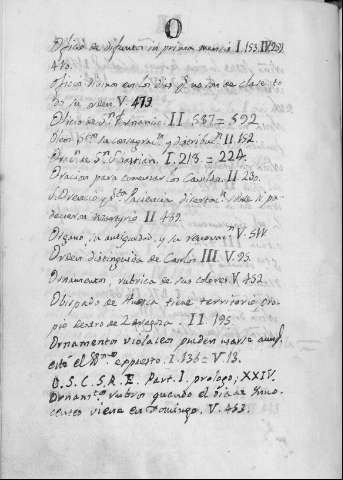 O
Oficio de difuntos in prima mensis I. 153. IV. 
470.
Oficio divino en los dias q.e no son de clase to
do su orden V. 473
Oficio de S.n Fernando. II 587 = 592
Oleos S.tos su consagrac.n y distribuc.n II. 152.
Orac.n de S.n Sebastian. I. 213. = 224.
Oracion para II. 230.
S. Orencio y S.ta Paciencia disertac.n sobre si pa-
decieron Martyrio II 469.
Organo, su antiguedad, y su V. 511
Orden distinguida de Carlos III V. 95.
Ornamentos, rubrica de sus colores V. 452
Obispado de Huesca tiene territorio pro
pio dentro de Zaragoza. II. 195.
Ornamentos violaceos pueden usarse aunq.
este el expuesto. I. 136 = V. 18.
O. S. C. S. R. E. Part. I. prologo, XXIV.
Ornam.tos rubros quando el dia de Yno-
centes viene en Domingo. V. 453.